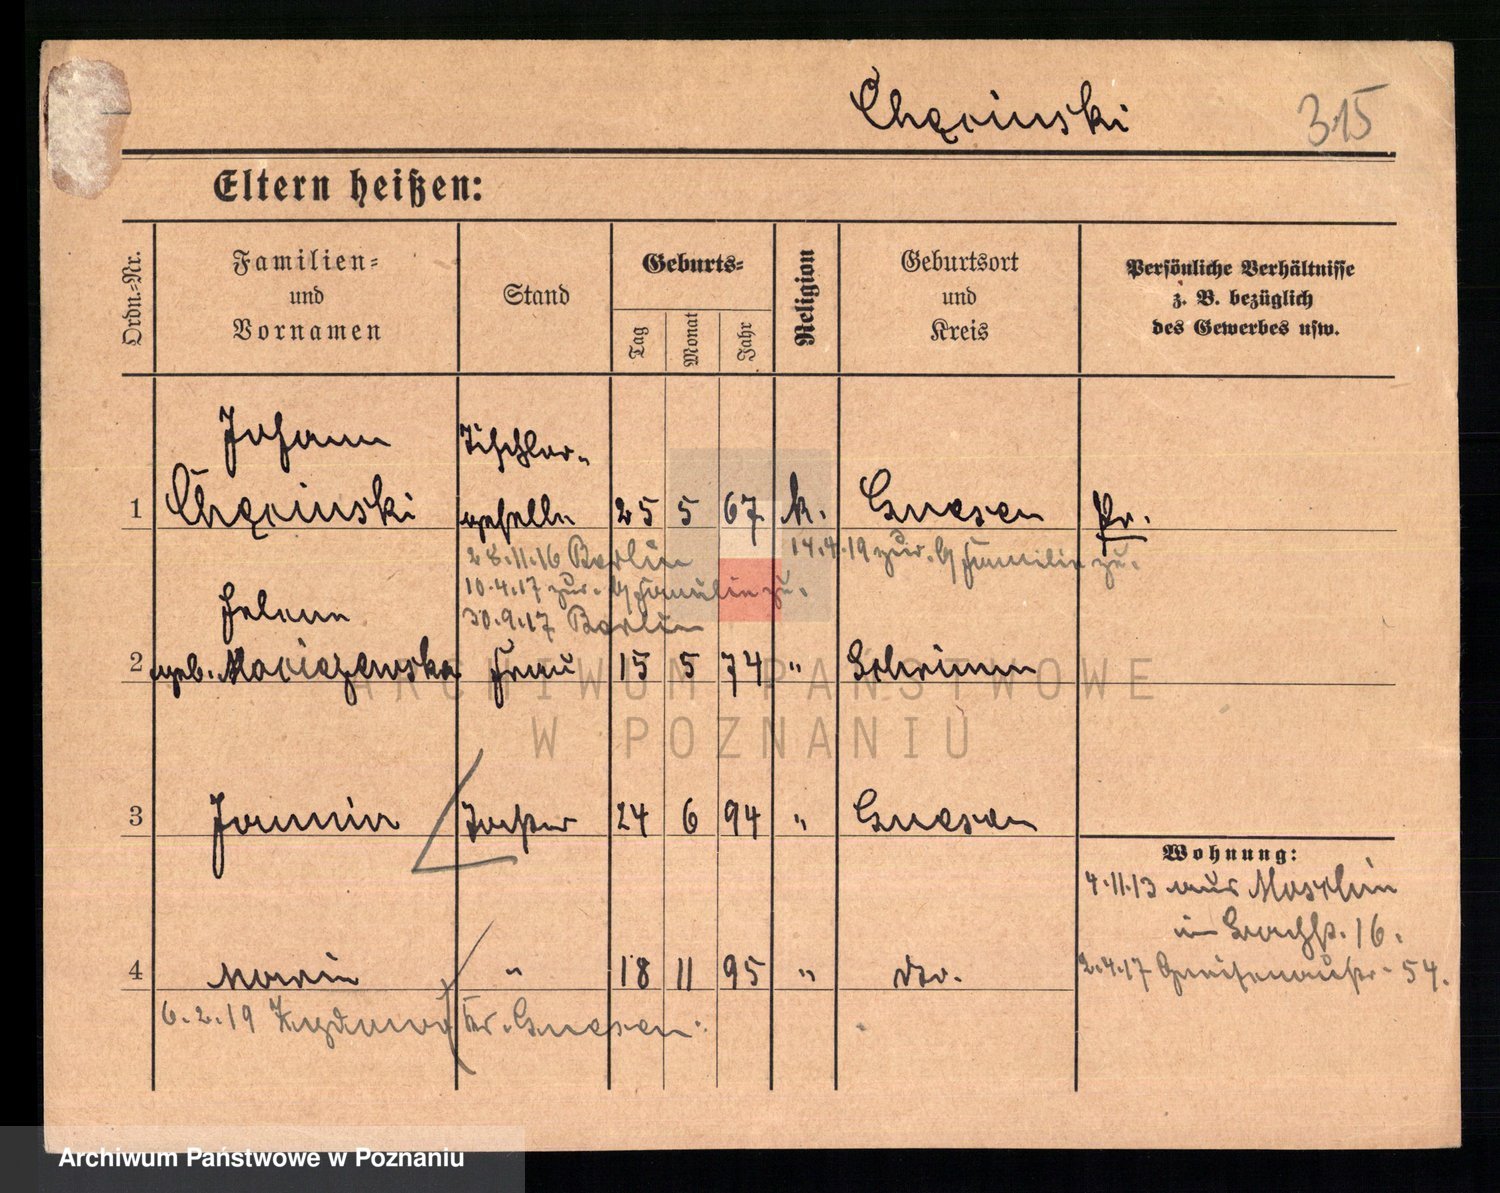 Chęcinski 315
Eltern heißen:
Ordn.-Nr.
Familien-
und
Vornamen
Stand
Geburts-
Tag
Monat
Jahr
Religion
Geburtsort
und
Kreis
Persönliche Verhältnisse
z. B. bezüglich
des Gewerbes usw.
Johann Tischler-
1 Chęcinski geselle 25 5 67 k. Gnesen Pr.
28.11.16 Berlin 14.4.19 zur. b/ Familie zu.
10.4.17 zur. b/ Familie zu.
Helene 30.9.17 Berlin
2 geb. Maciejewska Frau 15 5 74 " Schrimm
3 Tochter 24 6 94 " Gnesen
Wohnung:
4.11.13 aus
in Bachstr. 16.
4 Maria " 18 11 95 " do.
2.4.17 Gneisenaustr. 54.
6.2.19 Kr. Gnesen.
ARCHIWUM PAŃSTWOWE
W POZNANIU
Archiwum Państwowe w Poznaniu